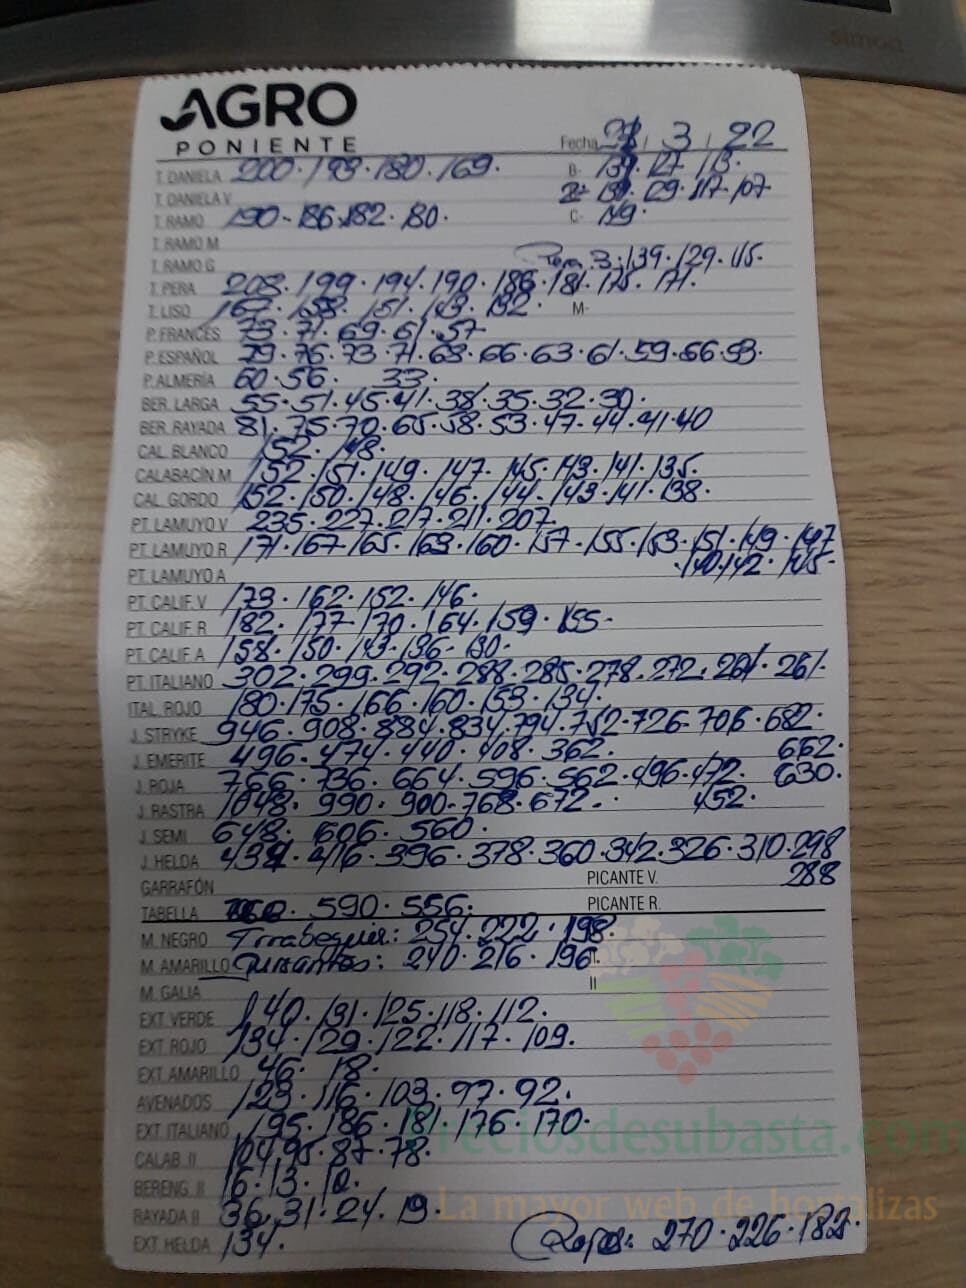 simon
AGRO
PONIENTE
Fecha / 3 / 22
T. DANIELA 200 · 193 · 180 · 169 · B- 127 · 113 ·
T. DANIELA V 129 · 117 · 107 ·
T. RAMO 190 · 186 · 182 · 180 · C-
T. RAMO M
T. RAMO G Pera 3: 139 · 129 · 115 ·
T. PERA 208 · 199 · 194 · 190 · 186 · 181 · 175 · 171 ·
T. LISO 167 · 158 · 151 · 143 · 132 · M-
P. FRANCÉS 73 · 71 · 69 · 61 · 57
P. ESPAÑOL 79 · 76 · 73 · 71 · 68 · 66 · 63 · 61 · 59 · 56 · 53 ·
P. ALMERÍA 60 · 56 · 33 ·
BER. LARGA 55 · 51 · 45 · 41 · 38 · 35 · 32 · 30 ·
BER. RAYADA 81 · 75 · 70 · 65 · 58 · 53 · 47 · 44 · 41 · 40
CAL. BLANCO 152 · 148 ·
CALABACÍN M 152 · 151 · 149 · 147 · 145 · 143 · 141 · 135 ·
CAL. GORDO 152 · 150 · 148 · 146 · 144 · 143 · 141 · 138 ·
PT. LAMUYO V 235 · 227 · 217 · 211 · 207
PT. LAMUYO R 171 · 167 · 165 · 163 · 160 · 157 · 155 · 153 · 151 · 149 · 147
PT. LAMUYO A
PT. CALIF. V 173 · 162 · 152 · 146 ·
PT. CALIF. R 182 · 177 · 170 · 164 · 159 · 155 ·
PT. CALIF. A 158 · 150 · 143 · 136 · 130 ·
PT. ITALIANO 302 · 299 · 292 · 288 · 285 · 278 · 272 · 267 · 261 ·
ITAL. ROJO 180 · 175 · 166 · 160 · 153 · 134 ·
J. STRYKE 946 · 908 · 884 · 834 · 794 · 752 · 726 · 706 · 682 ·
J. EMERITE 496 · 474 · 440 · 408 · 362 · 662 ·
J. ROJA 766 · 736 · 664 · 596 · 562 · 496 · 472 · 630 ·
J. RASTRA 1048 · 990 · 900 · 768 · 672 · 452 ·
J. SEMI 648 · 606 · 560 ·
J. HELDA 434 · 416 · 396 · 378 · 360 · 342 · 326 · 310 · 298
GARRAFÓN PICANTE V. 288
TABELLA 590 · 556 · PICANTE R.
M. NEGRO Tirabeques: 254 · 222 · 198 ·
M. AMARILLO Guisantes: 240 · 216 · 196 ·
M. GALIA II
EXT. VERDE 140 · 131 · 125 · 118 · 112 ·
EXT. ROJO 134 · 129 · 122 · 117 · 109 ·
EXT. AMARILLO 46 · 18 ·
AVENADOS 123 · 116 · 103 · 97 · 92 ·
EXT. ITALIANO 195 · 186 · 181 · 176 · 170 ·
CALAB. II 104 · 95 · 87 · 78 ·
BERENG. II 16 · 13 · 10 ·
RAYADA II 36 · 31 · 24 · 19 ·
EXT. HELDA 134 · Rojos: 270 · 226 · 182 ·
Preciosdesubasta.com
La mayor web de hortalizas